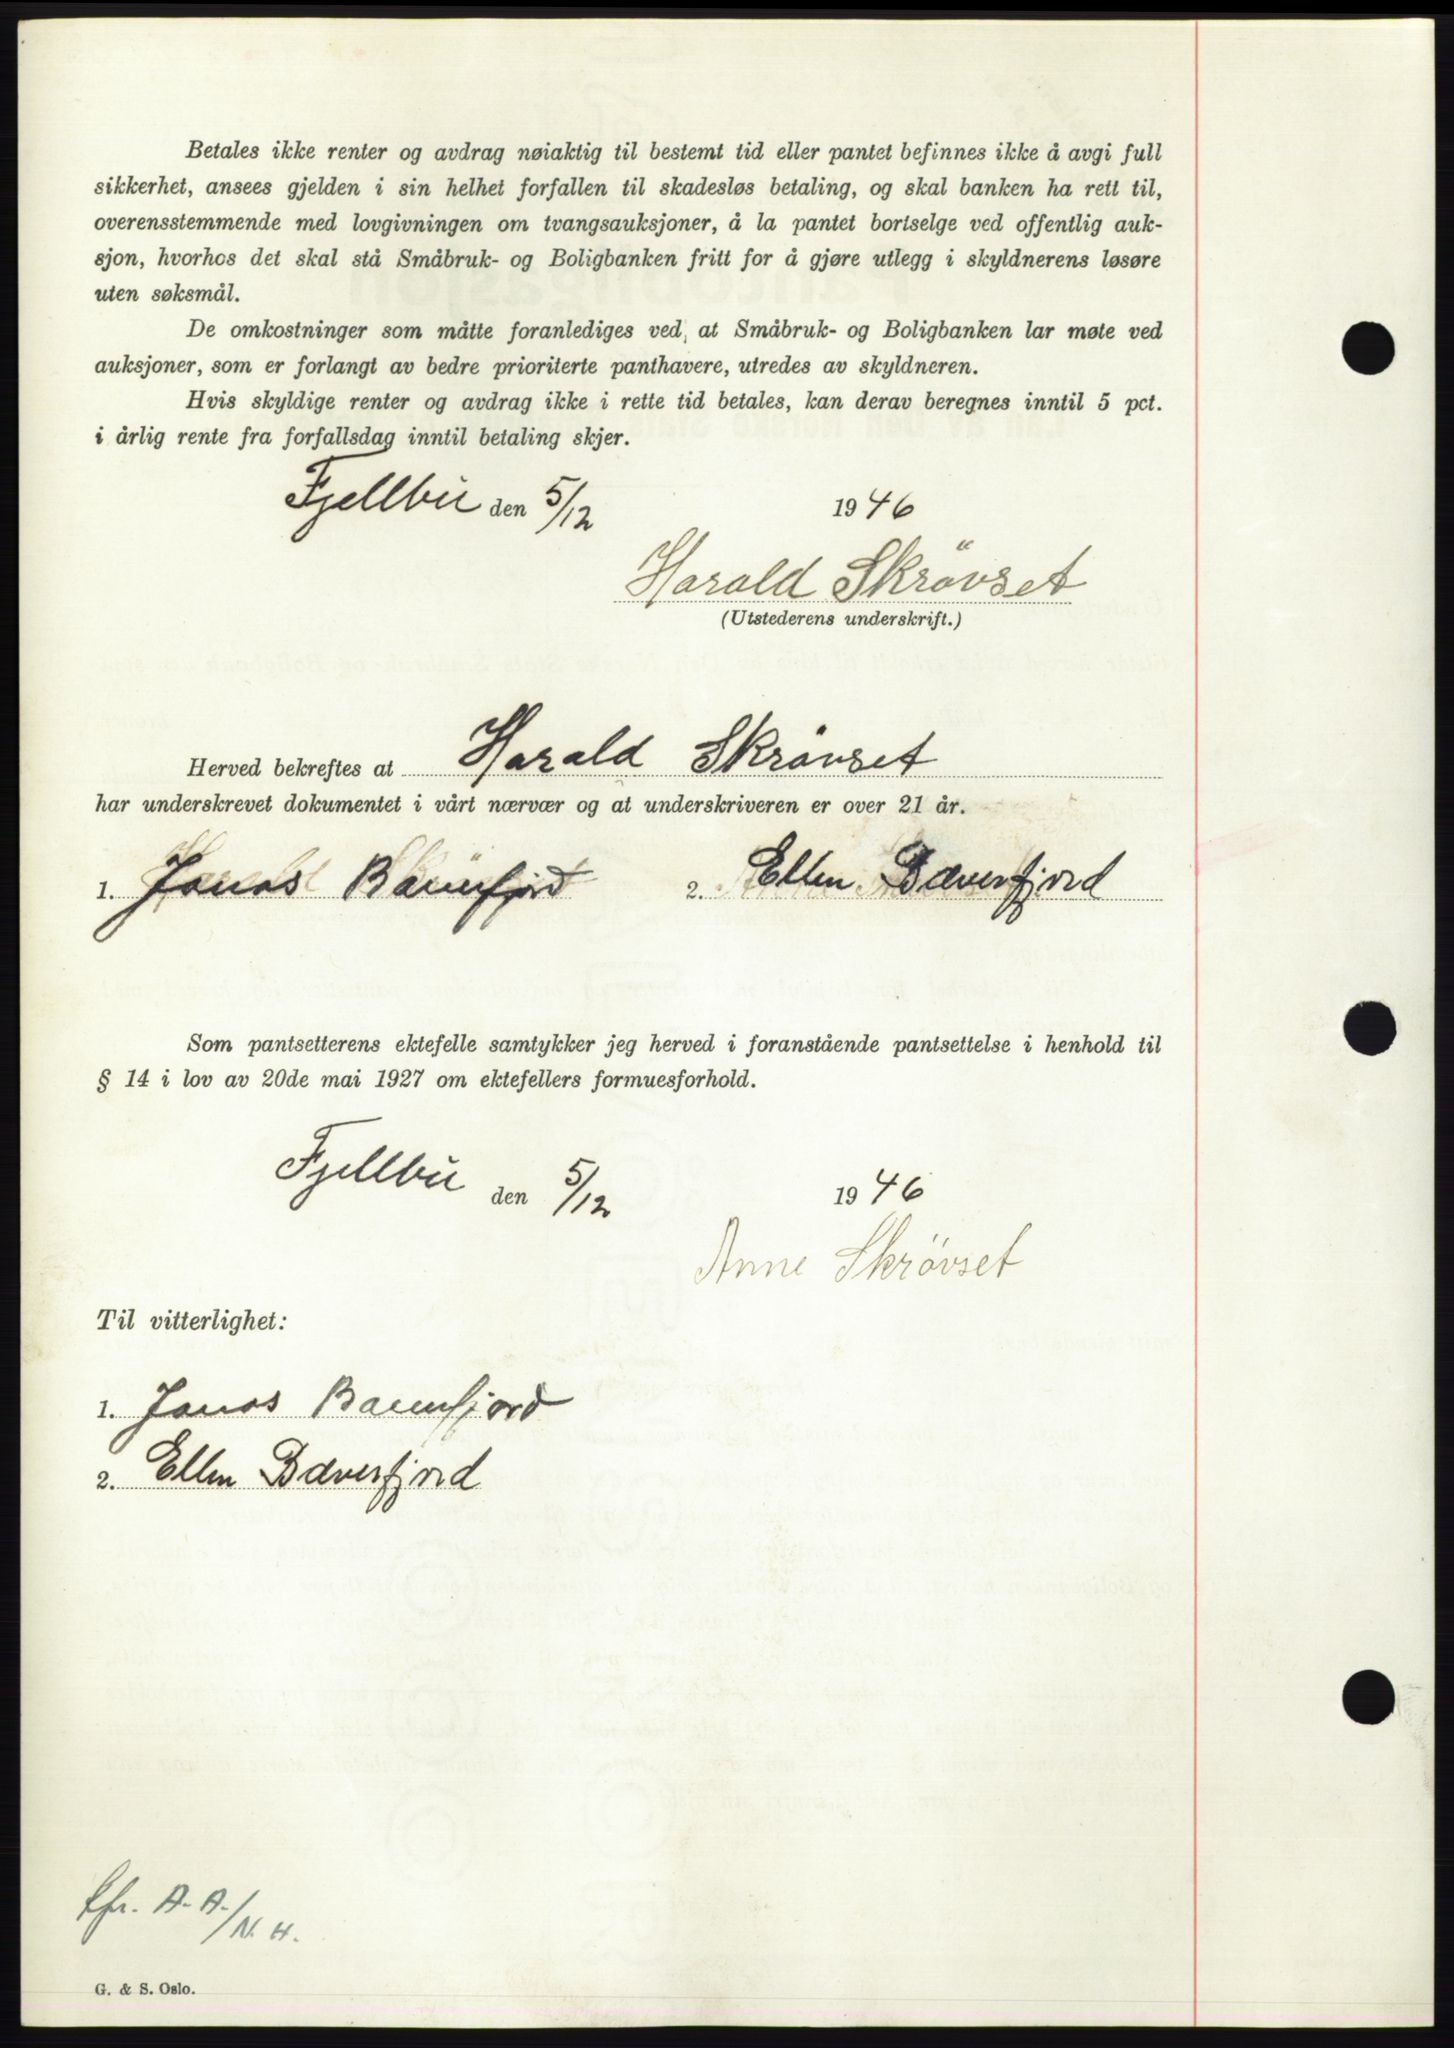 Betales ikke renter og avdrag nøiaktig til bestemt tid eller pantet befinnes ikke å avgi full
sikkerhet, ansees gjelden i sin helhet forfallen til skadesløs betaling, og skal banken ha rett til,
overensstemmende med lovgivningen om tvangsauksjoner, å la pantet bortselge ved offentlig auk-
sjon, hvorhos det skal stå Småbruk- og Boligbanken fritt for å gjøre utlegg i skyldnerens løsøre
uten søksmål.
De omkostninger som måtte foranlediges ved, at Småbruk- og Boligbanken lar møte ved
auksjoner, som er forlangt av bedre prioriterte panthavere, utredes av skyldneren.
Hvis skyldige renter og avdrag ikke i rette tid betales, kan derav beregnes inntil 5 pct.
i årlig rente fra forfallsdag inntil betaling skjer.
Fjellbu den 5/12 1946
Harald Skrövset
(Utstederens underskrift.)
Herved bekreftes at Harald Skrövset
har underskrevet dokumentet i vårt nærvær og at underskriveren er over 21 år.
1. Jonas Bæverfjord 2. Ellen Bæverfjord
Som pantsetterens ektefelle samtykker jeg herved i foranstående pantsettelse i henhold til
§ 14 i lov av 20de mai 1927 om ektefellers formuesforhold.
Fjellbu den 5/12 1946
Anne Skrövset
Til vitterlighet:
1. Jonas Bæverfjord
2. Ellen Bæverfjord
Cfr. A. A./N. H.
G. & S. Oslo.